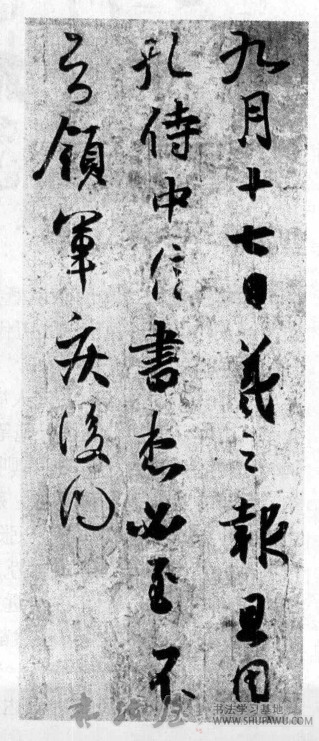 九月十七日羲之報且因
孔侍中信書想必至不
知領軍疾後問
书法屋
书法学习基地
WWW.SHUFAWU.COM